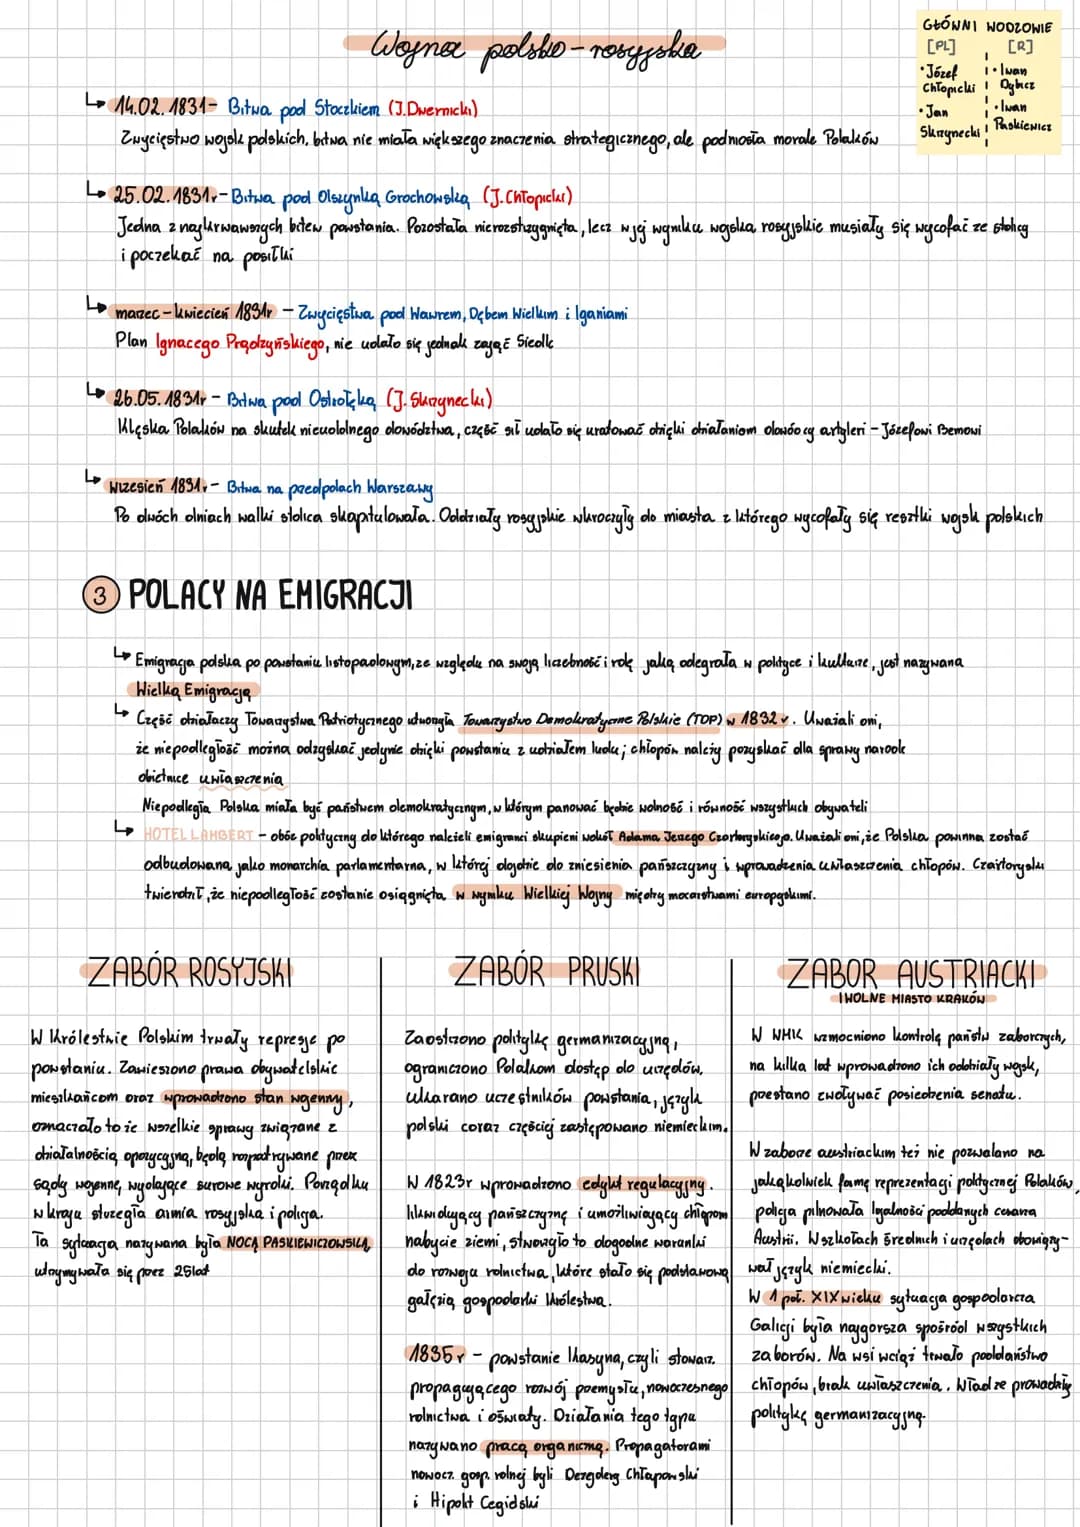 Wojna polsko-rosyjska
GŁÓWNI WODZOWIE
[PL] [R]
• Józef Chłopicki • Iwan Dybicz
• Jan Skrzynecki • Iwan Paskiewicz
↳ 14.02.1831 - Bitwa pod Stoczkiem (J.Dwernicki)
Zwycięstwo wojsk polskich, bitwa nie miała większego znaczenia strategicznego, ale podniosła morale Polaków
↳ 25.02.1831r - Bitwa pod Olszynką Grochowską (J.Chłopicki)
Jedna z najkrwawszych bitew powstania. Pozostała nierozstrzygnięta, lecz w jej wyniku wojska rosyjskie musiały się wycofać ze stolicy
i poczekać na posiłki
↳ marzec - kwiecień 1831r - Zwycięstwa pod Wawrem, Dębem Wielkim i Iganiami
Plan Ignacego Prądzyńskiego, nie udało się jednak zająć Siedlc
↳ 26.05.1831r - Bitwa pod Ostrołęką (J. Skrzynecki)
Klęska Polaków na skutek nieudolnego dowództwa, część sił udało się uratować dzięki działaniom dowódcy artyleri - Józefowi Bemowi
↳ Wrzesień 1831r - Bitwa na przedpolach Warszawy
Po dwóch dniach walki stolica skapitulowała. Oddziały rosyjskie wkroczyły do miasta z którego wycofały się resztki wojsk polskich
3 POLACY NA EMIGRACJI
↳ Emigracja polska po powstaniu listopadowym, ze względu na swoją liczebność i rolę jaką odegrała w polityce i kulturze, jest nazywana
Wielką Emigracją
↳ Część działaczy Towarzystwa Patriotycznego utworzyła Towarzystwo Demokratyczne Polskie (TDP) w 1832r. Uważali oni,
że niepodległość można odzyskać jedynie dzięki powstaniu z udziałem ludu; chłopów należy pozyskać dla sprawy narodu
obietnice uwłaszczenia
Niepodległa Polska miała być państwem demokratycznym, w którym panować będzie wolność i równość wszystkich obywateli
↳ HOTEL LAMBERT - obóz polityczny do którego należeli emigranci skupieni wokół Adama Jerzego Czartoryskiego. Uważali oni, że Polska powinna zostać
odbudowana, jako monarchia parlamentarna, w której dojdzie do zniesienia pańszczyzny i wprowadzenia uwłaszczenia chłopów. Czartoryski
twierdził, że niepodległość zostanie osiągnięta w wyniku Wielkiej Wojny między mocarstwami europejskimi.
ZABÓR ROSYJSKI
W Królestwie Polskim trwały represje po
powstaniu. Zawieszono prawa obywatelskie
mieszkańcom oraz wprowadzono stan wojenny,
oznaczało to że wszelkie sprawy związane z
działalnością opozycyjną, będą rozpatrywane przez
sądy wojenne, wydające surowe wyroki. Porządku
w kraju strzegła armia rosyjska i policja.
Ta sytuacja nazywana była NOCĄ PASKIEWICZOWSKĄ,
utrzymywała się przez 25 lat
ZABÓR PRUSKI
Zaostrzono politykę germanizacyjną,
ograniczono Polakom dostęp do urzędów,
ukarano uczestników powstania, język
polski coraz częściej zastępowano niemieckim.
W 1823r wprowadzono edykt regulacyjny.
likwidujący pańszczyznę i umożliwiający chłopom
nabycie ziemi, stworzyło to dogodne warunki
do rozwoju rolnictwa, które stało się podstawową
gałęzią gospodarki Królestwa.
1835r - powstanie Kasyna, czyli stowarz.
propagującego rozwój przemysłu, nowoczesnego
rolnictwa i oświaty. Działania tego typu
nazywano pracą organiczną. Propagatorami
nowocz. gosp. rolnej byli Dezydery Chłapowski
i Hipolit Cegielski
ZABÓR AUSTRIACKI
I WOLNE MIASTO KRAKÓW
W WMK wzmocniono kontrolę państw zaborczych,
na kilka lat wprowadzono ich oddziały wojsk,
przestano zwoływać posiedzenia senatu.
W zaborze austriackim też nie pozwalano na
jakąkolwiek formę reprezentacji politycznej Polaków,
policja pilnowała lojalności poddanych cesarza
Austrii. W szkołach średnich i urzędach obowiązy-
wał język niemiecki.
W 1 poł. XIX wieku sytuacja gospodarcza
Galicji była najgorsza spośród wszystkich
zaborów. Na wsi wciąż trwało poddaństwo
chłopów, brak uwłaszczenia. Władze prowadziły
politykę germanizacyjną.